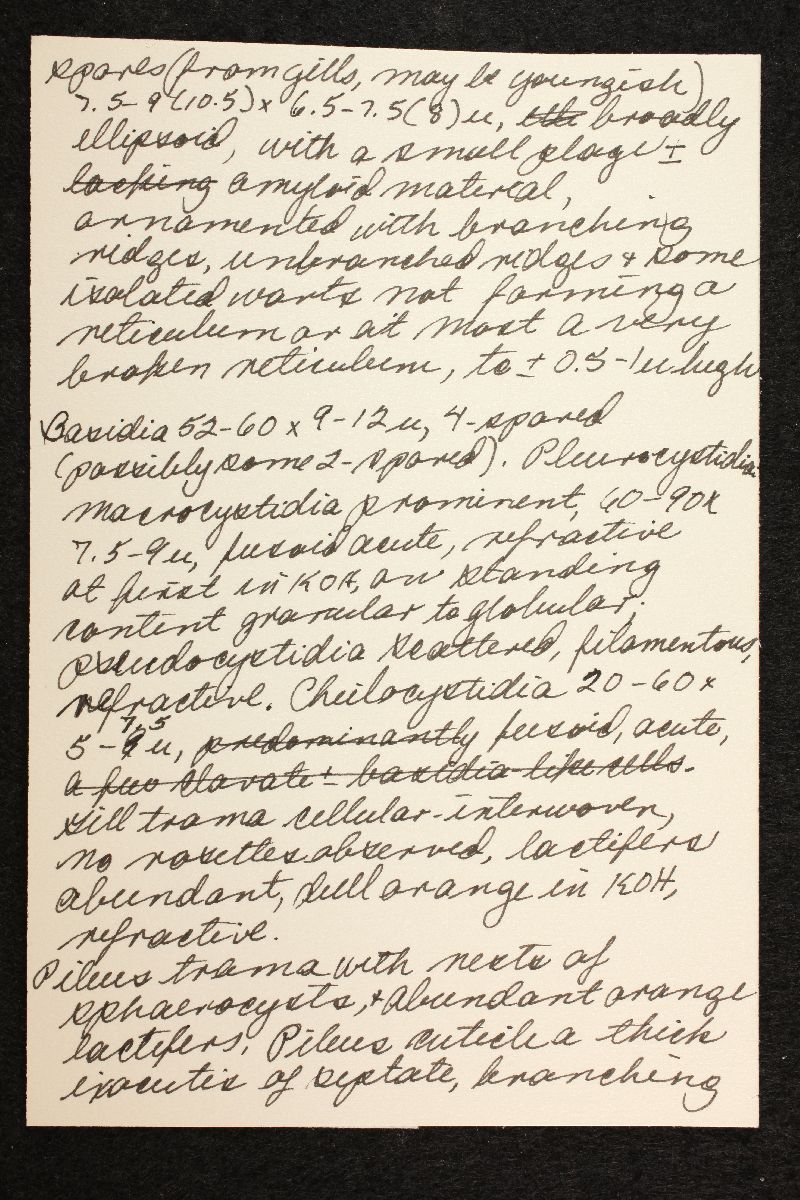 spores (from gills, may be youngish)
7.5-9(10.5) x 6.5-7.5(8) u, broadly
ellipsoid, with a small plage ±
lacking amyloid material,
ornamented with branching
ridges, unbranched ridges + some
isolated warts not forming a
reticulum or at most a very
broken reticulum, to ± 0.5-1 u high
Basidia 52-60 x 9-12 u, 4-spored
(possibly some 2-spored). Pleurocystidia:
macrocystidia prominent, 60-90 x
7.5-9 u, fusoid acute, refractive
at first in KOH, on standing
content granular to globular;
pseudocystidia scattered, filamentous,
refractive. Cheilocystidia 20-60 x
5-7.5 u, predominantly fusoid, acute,
a few clavate ± basidia-like cells.
Gill trama cellular-interwoven,
no rosettes observed, lactifers
abundant, dull orange in KOH,
refractive.
Pileus trama with nests of
sphaerocysts, + abundant orange
lactifers. Pileus cuticle a thick
ixocutis of septate, branching